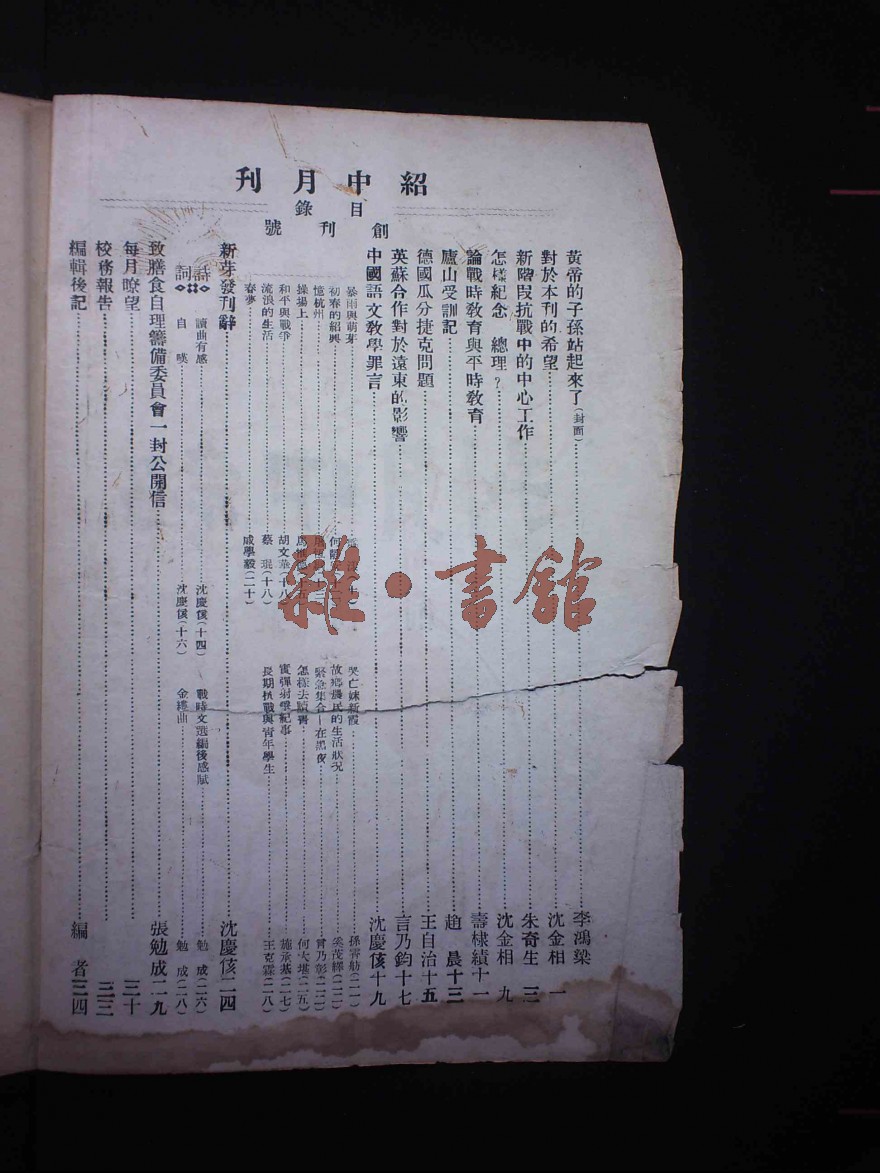 紹中月刊
目錄
創刊號
黃帝的子孫站起來了(封面)……李鴻梁
對於本刊的希望……沈金相 一
新階段抗戰中的中心工作……朱奇生 三
怎樣紀念 總理?……沈金相 九
論戰時教育與平時教育……壽棣績十一
廬山受訓記……趙 晨十三
德國瓜分捷克問題……王自治十五
英蘇合作對於遠東的影響……言乃鈞十七
中國語文教學罪言……沈慶侅十九
暴雨與萌芽
哭亡妹新霞……孫(二一)
初春的紹興……何
故鄉農民的生活狀况……(二二)
憶杭州
緊急集合—在黑夜……曾乃彰(二三)
操場上
怎樣去讀書……何大堪(二五)
和平與戰爭……胡文華(十八)
實彈射擊紀事……施承基(二七)
流浪的生活……蔡琨(十八)
長期抗戰與青年學生……王克霖(二八)
春夢……戚學毅(二十)
新芽發刊辭……沈慶侅二四
詩詞
讀曲有感……沈慶侅(十四)
戰時文選編後感賦……勉 成(二六)
自 嘆……沈慶侅(十六)
金縷曲……勉 成(二八)
致膳食自理籌備委員會一封公開信……張勉成二九
每月瞭望……三十
校務報告……三三
編輯後記……編 者三四
雜·書館